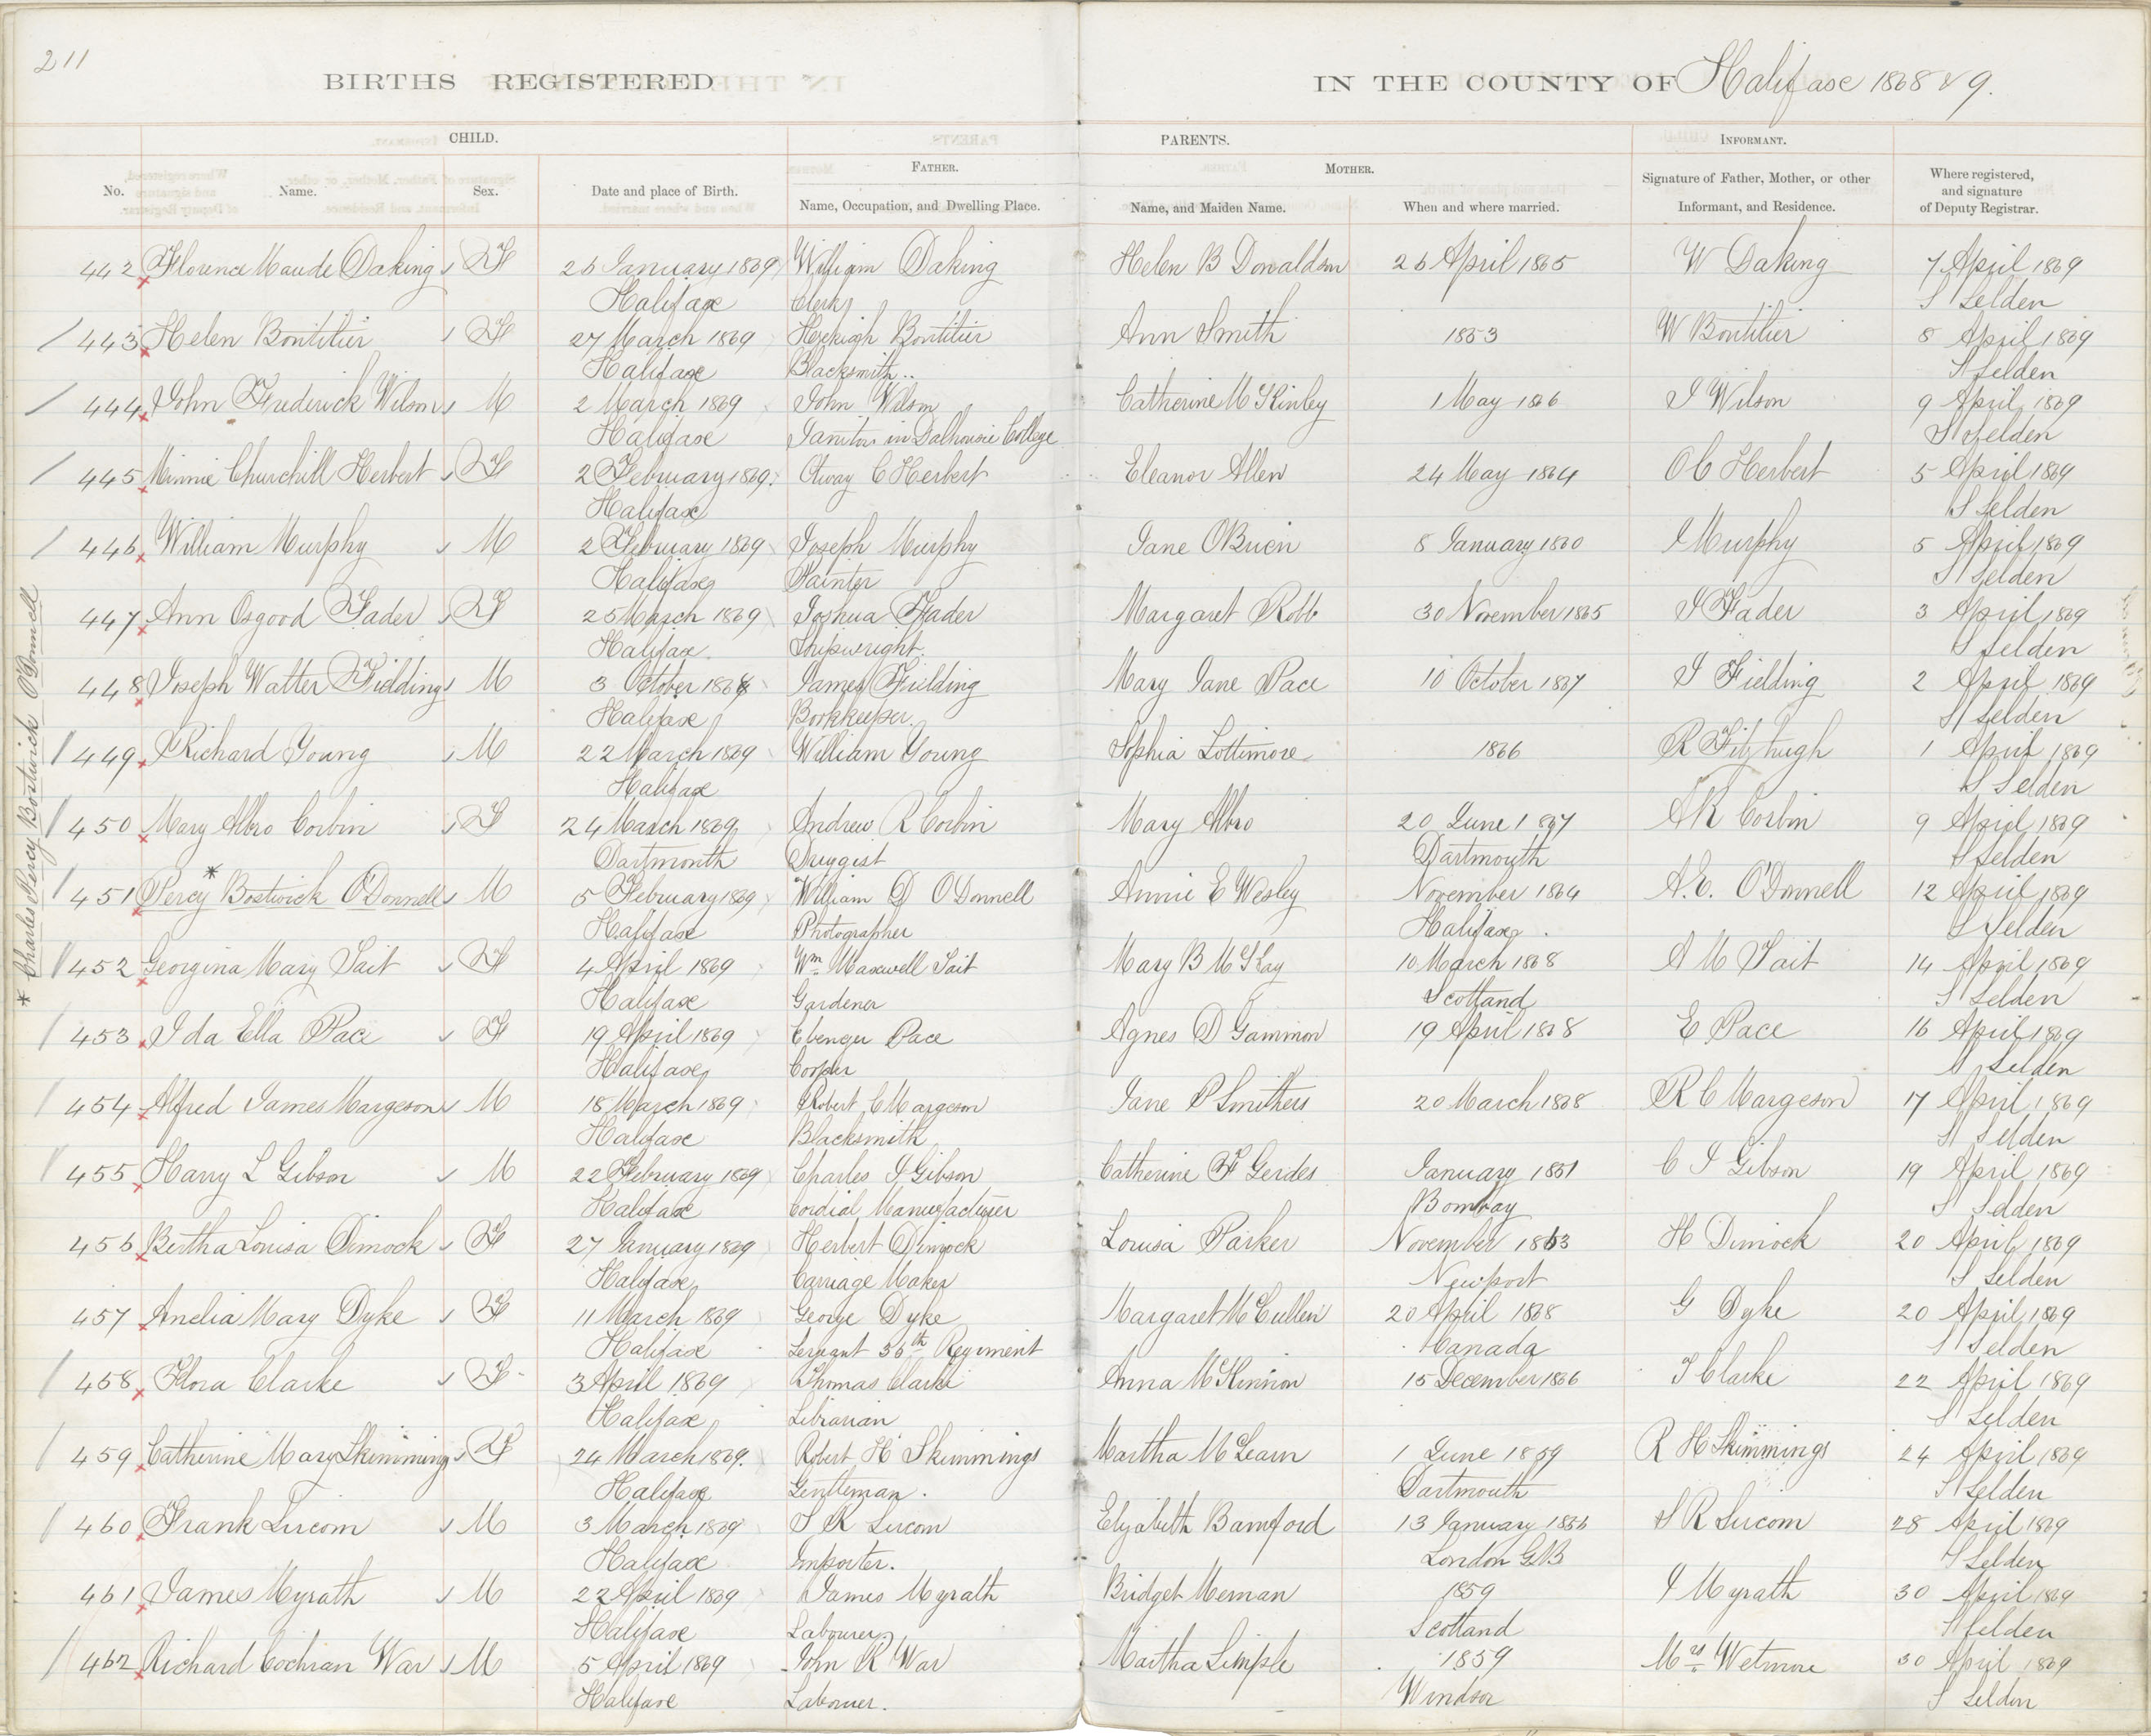 211
BIRTHS REGISTERED IN THE COUNTY OF Halifax 1868 & 9.
CHILD. PARENTS. INFORMANT.
FATHER. MOTHER.
No. Name. Sex. Date and place of Birth. Name, Occupation, and Dwelling Place. Name, and Maiden Name. When and where married. Signature of Father, Mother, or other Informant, and Residence. Where registered, and signature of Deputy Registrar.
442 Florence Maude Daking F 26 January 1869 William Daking Helen B Donaldson 26 April 1865 W Daking 7 April 1869
Halifax Clerk S Selden
443 Helen Bontilier F 27 March 1869 Hezkiah Bontilier Ann Smith 1853 W Bontilier 8 April 1869
Halifax Blacksmith S Selden
444 John Frederick Wilson M 2 March 1869 John Wilson Catherine McKinley 1 May 1866 J Wilson 9 April 1869
Halifax Janitor in Dalhousie College S Selden
445 Minnie Churchill Herbert F 2 February 1869 Otway C Herbert Eleanor Allen 24 May 1864 O C Herbert 5 April 1869
Halifax S Selden
446 William Murphy M 2 February 1869 Joseph Murphy Jane O'Brien 8 January 1860 J Murphy 5 April 1869
Halifax Painter S Selden
447 Ann Osgood Fader F 25 March 1869 Joshua Fader Margaret Robb 30 November 1865 J Fader 3 April 1869
Halifax Shipwright. S Selden
448 Joseph Walter Fielding M 3 October 1868 James Fielding Mary Jane Pace 10 October 1867 J Fielding 2 April 1869
Halifax Bookkeeper. S Selden
449 Richard Young M 22 March 1869 William Young Sophia Lottimore 1866 R Fitzhugh 1 April 1869
Halifax S Selden
450 Mary Albro Corbin F 24 March 1869 Andrew R Corbin Mary Albro 20 June 1867 A R Corbin 9 April 1869
Dartmouth Druggist Dartmouth S Selden
451 Percy * Bostwick O'Donnell M 5 February 1869 William D O'Donnell Annie E Wesley November 1864 A. E. O'Donnell 12 April 1869
Halifax Photographer Halifax. S Selden
* Charles Percy Bostwick O'Donnell
452 Georgina Mary Tait F 4 April 1869 Wm Maxwell Tait Mary B McKay 10 March 1868 A M Tait 14 April 1869
Halifax Gardener Scotland S Selden
453 Ida Ella Pace F 19 April 1869 Ebenezer Pace Agnes D Gammon 19 April 1868 E Pace 16 April 1869
Halifax Cooper S Selden
454 Alfred James Margeson M 18 March 1869 Robert C Margeson Jane P Smithers 20 March 1868 R C Margeson 17 April 1869
Halifax Blacksmith S Selden
455 Harry L Gibson M 22 February 1869 Charles J Gibson Catherine F Gerdes January 1851 C J Gibson 19 April 1869
Halifax Cordial Manufacturer Bombay S Selden
456 Bertha Louisa Dimock F 27 January 1869 Herbert Dimock Louisa Parker November 1863 H Dimock 20 April 1869
Halifax Carriage Maker Newport S Selden
457 Amelia Mary Dyke F 11 March 1869 George Dyke Margaret McCullen 20 April 1868 G Dyke 20 April 1869
Halifax Sergeant 36th Regiment Canada S Selden
458 Flora Clarke F 3 April 1869 Thomas Clarke Anna McKinnon 15 December 1866 T Clarke 22 April 1869
Halifax Librarian S Selden
459 Catherine Mary Skimmings F 24 March 1869. Robert H Skimmings Martha McLearn 1 June 1859 R H Skimmings 24 April 1869
Halifax Gentleman. Dartmouth S Selden
460 Frank Sircom M 3 March 1869 S R Sircom Elizabeth Bamford 13 January 1856 S R Sircom 28 April 1869
Halifax Importer. London GB S Selden
461 James Myrath M 22 April 1869 James Myrath Bridget Mernan 1859 J Myrath 30 April 1869
Halifax Labourer Scotland S Selden
462 Richard Cochran War M 5 April 1869 John R War Martha Simple 1859 Mrs Wetmore 30 April 1869
Halifax Labourer. Windsor S Selden